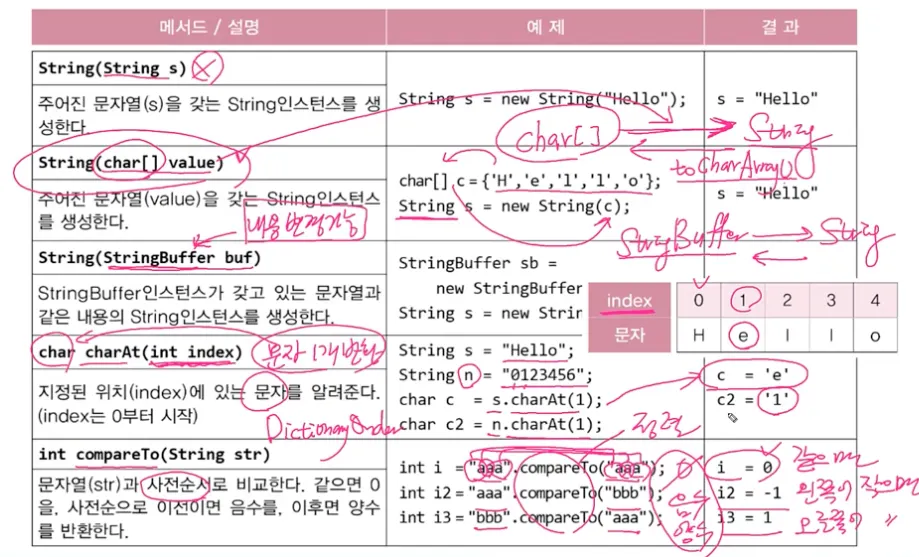 메서드 / 설명
예 제
결 과
String(String s)
주어진 문자열(s)을 갖는 String인스턴스를 생
성한다.
String s = new String("Hello");
s = "Hello"
char[]
String
toCharArray()
String(char[] value)
주어진 문자열(value)을 갖는 String인스턴스
를 생성한다.
char[] c={'H','e','l','l','o'};
String s = new String(c);
s = "Hello"
내용변경가능
StringBuffer
String
String(StringBuffer buf)
StringBuffer인스턴스가 갖고 있는 문자열과
같은 내용의 String인스턴스를 생성한다.
StringBuffer sb =
new StringBuffer
String s = new Strin
index 0 1 2 3 4
문자 H e l l o
char charAt(int index)
문자 1개 반환
지정된 위치(index)에 있는 문자를 알려준다.
(index는 0부터 시작)
String s = "Hello";
String n = "0123456";
char c = s.charAt(1);
char c2 = n.charAt(1);
c = 'e'
c2 = '1'
Dictionary Order
정렬
int compareTo(String str)
문자열(str)과 사전순서로 비교한다. 같으면 0
을, 사전순으로 이전이면 음수를, 이후면 양수
를 반환한다.
int i ="aaa".compareTo("aaa"); 0
int i2="aaa".compareTo("bbb"); 음수
int i3="bbb".compareTo("aaa"); 양수
i = 0 같으면
i2 = -1 왼쪽이 작으면
i3 = 1 오른쪽이 "